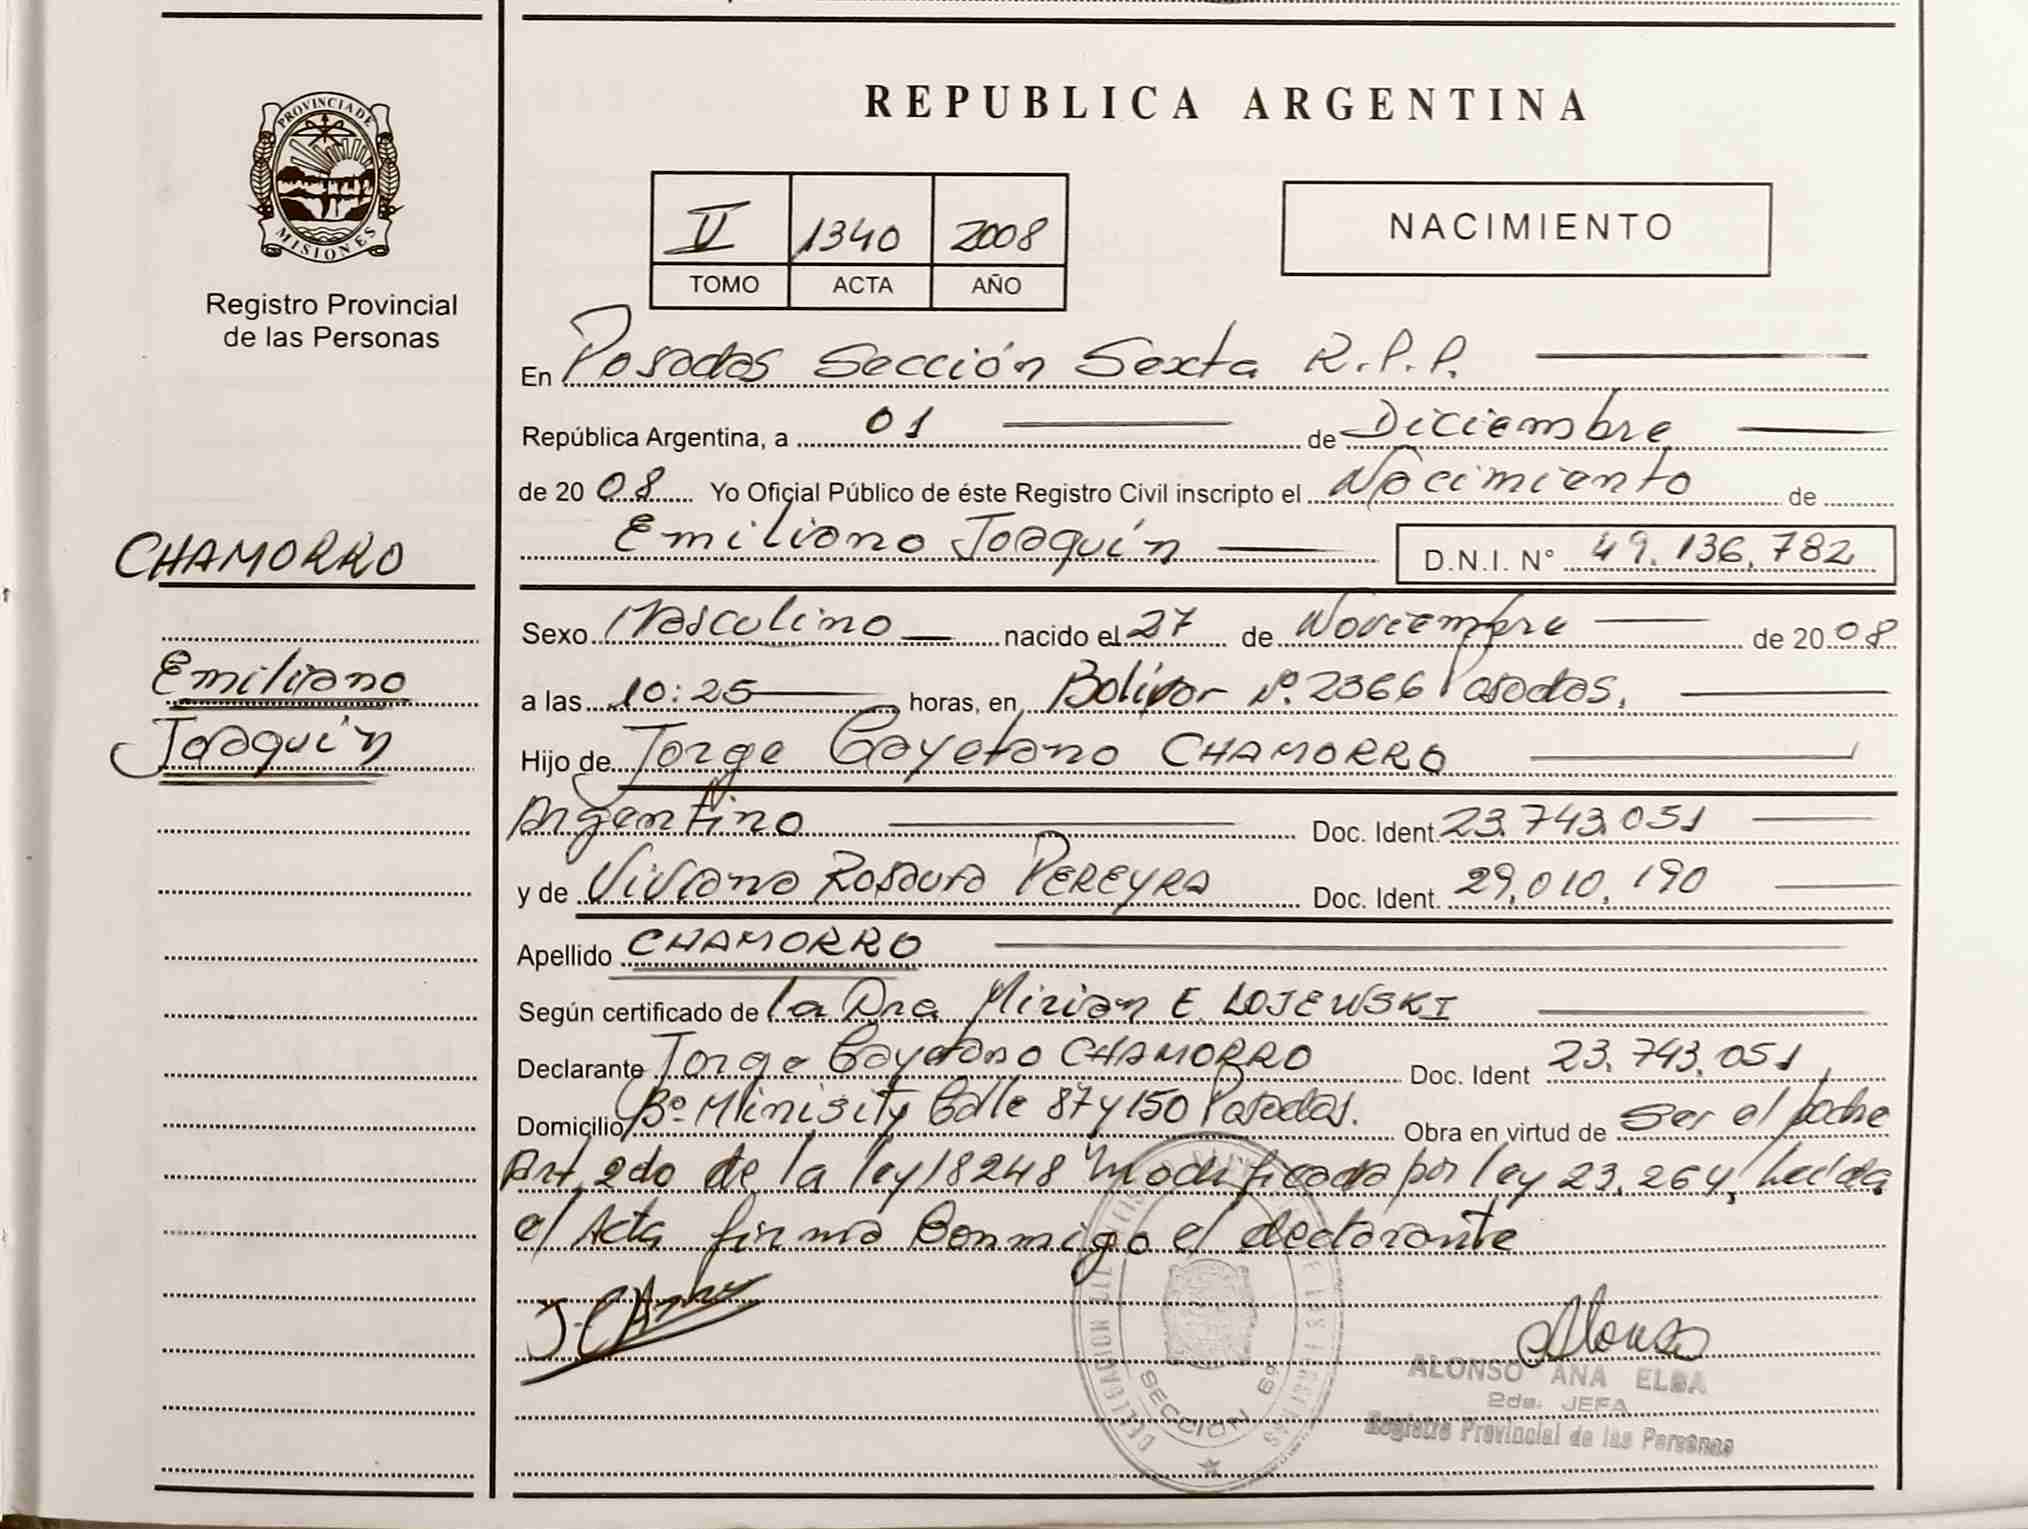 PROVINCIA DE
MISIONES
Registro Provincial
de las Personas
CHAMORRO
Emiliano
Joaquín
REPUBLICA ARGENTINA
V 1340 2008
TOMO ACTA AÑO
NACIMIENTO
En Posadas Sección Sexta R.P.P.
República Argentina, a 01 de Diciembre
de 2008 Yo Oficial Público de éste Registro Civil inscripto el Nacimiento de
Emiliano Joaquín D.N.I. N° 49.136.782
Sexo Masculino nacido el 27 de Noviembre de 2008
a las 10:25 horas, en Bolívar Nº 2366 Posadas.
Hijo de Jorge Cayetano CHAMORRO
Argentino Doc. Ident. 23.743.051
y de Viviana Rosaura PEREYRA Doc. Ident. 29.010.190
Apellido CHAMORRO
Según certificado de la Dra Mirian E. LOJEWSKI
Declarante Jorge Cayetano CHAMORRO Doc. Ident 23.743.051
Domicilio Bº Minisity Calle 87 y 150 Posadas. Obra en virtud de ser el padre
Art. 2do de la ley 18248 modificada por ley 23.264, leída
el Acta firma conmigo el declarante
Alonso
ALONSO ANA ELBA
2da. JEFA
Registro Provincial de las Personas
SECCION 6º